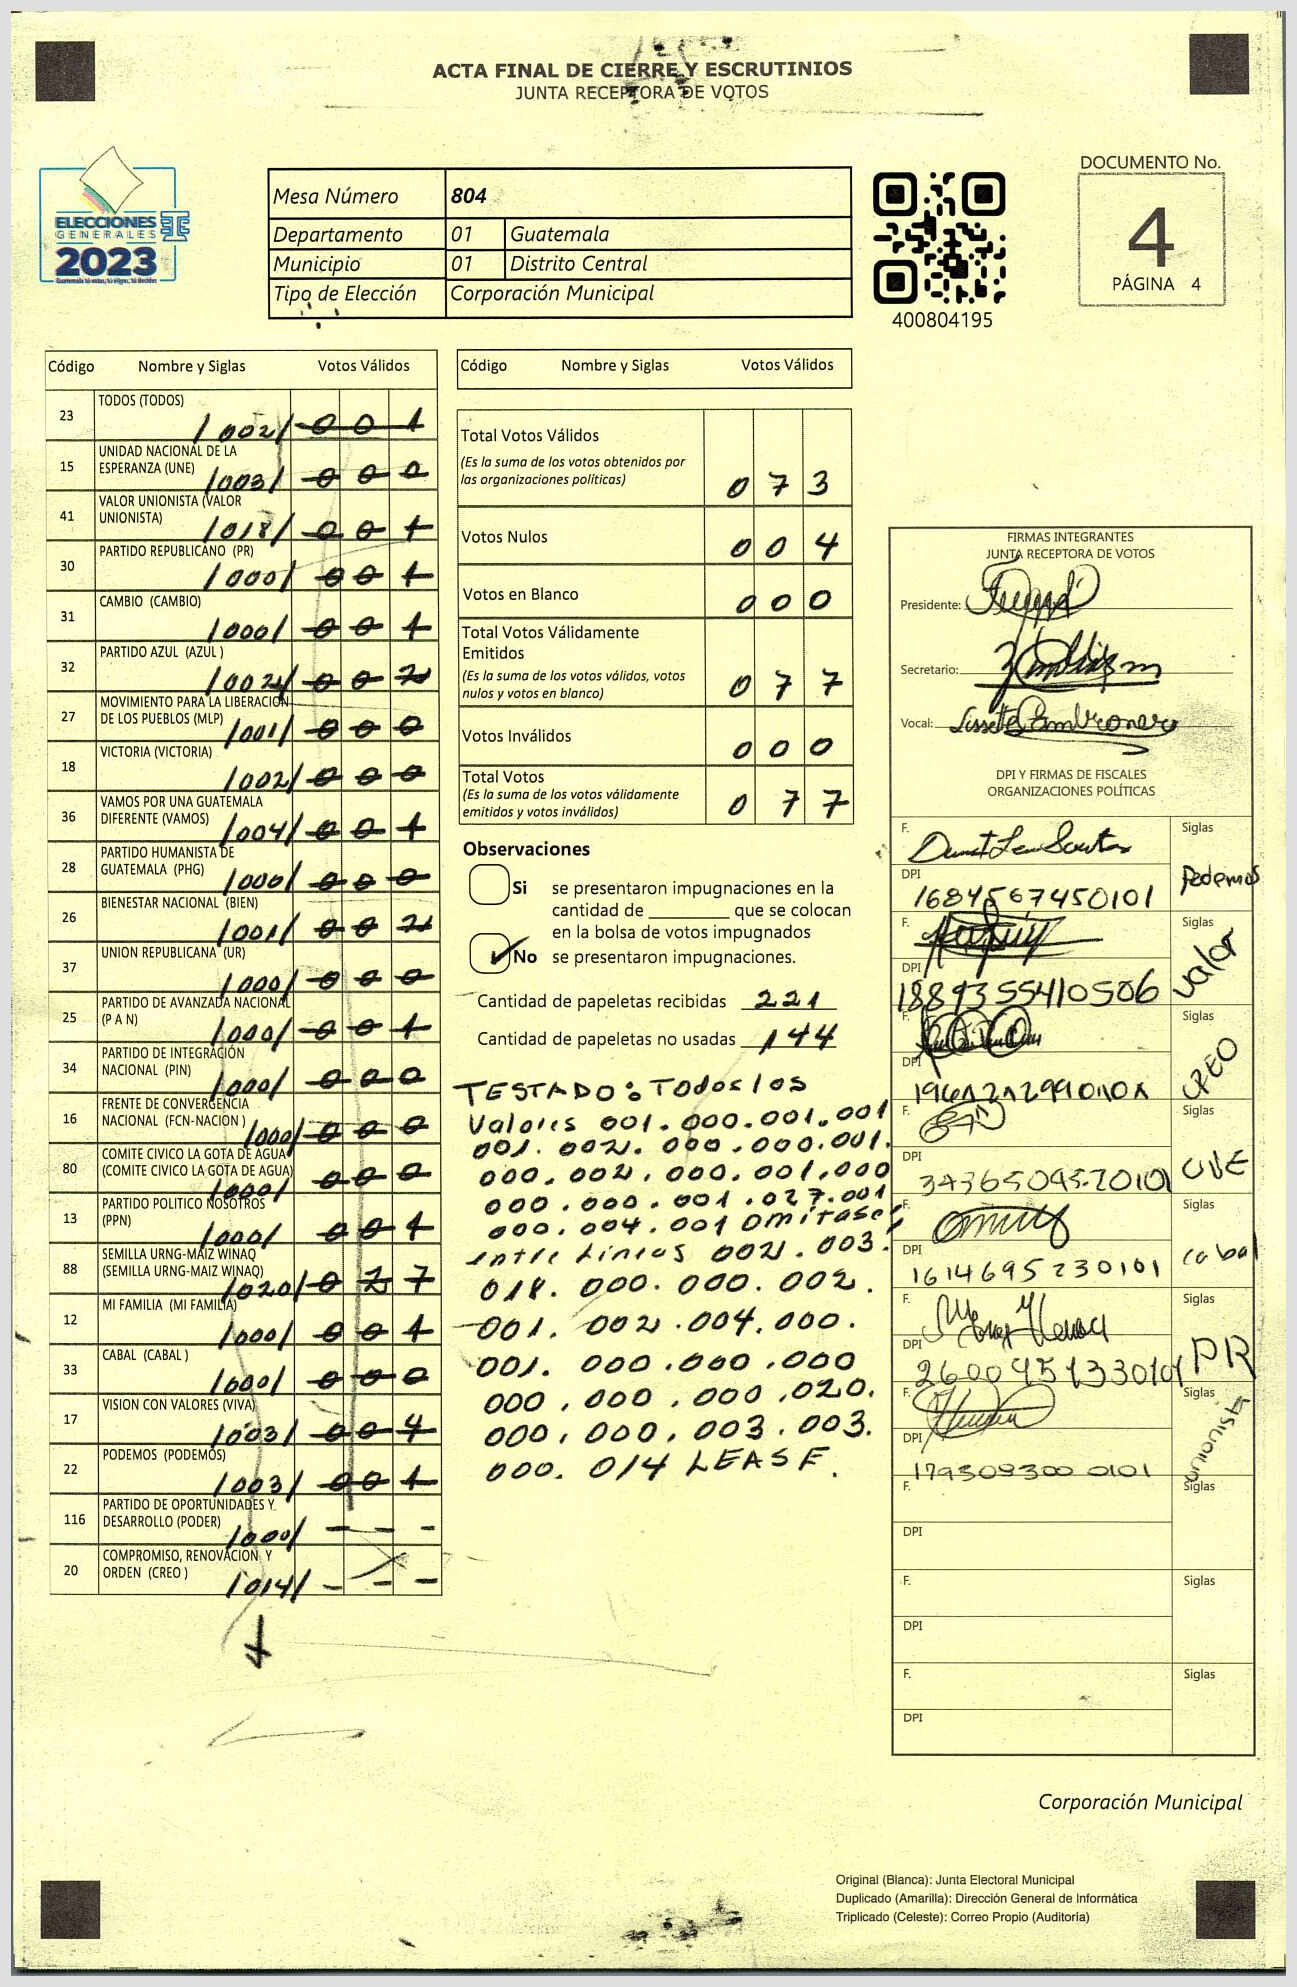 ACTA FINAL DE CIERRE Y ESCRUTINIOS
JUNTA RECEPTORA DE VOTOS
ELECCIONES
GENERALES
2023
Mesa Número 804
Departamento 01 Guatemala
Municipio 01 Distrito Central
Tipo de Elección Corporación Municipal
400804195
DOCUMENTO No.
4
PÁGINA 4
Código Nombre y Siglas Votos Válidos
23 TODOS (TODOS) /002/ 0 0 1
15 UNIDAD NACIONAL DE LA ESPERANZA (UNE) /003/ 0 0 0
41 VALOR UNIONISTA (VALOR UNIONISTA) /018/ 0 0 1
30 PARTIDO REPUBLICANO (PR) /000/ 0 0 1
31 CAMBIO (CAMBIO) /000/ 0 0 1
32 PARTIDO AZUL (AZUL ) /002/ 0 0 2
27 MOVIMIENTO PARA LA LIBERACION DE LOS PUEBLOS (MLP) /001/ 0 0 0
18 VICTORIA (VICTORIA) /002/ 0 0 0
36 VAMOS POR UNA GUATEMALA DIFERENTE (VAMOS) /004/ 0 0 1
28 PARTIDO HUMANISTA DE GUATEMALA (PHG) /000/ 0 0 0
26 BIENESTAR NACIONAL (BIEN) /001/ 0 0 2
37 UNION REPUBLICANA (UR) /000/ 0 0 0
25 PARTIDO DE AVANZADA NACIONAL (P A N) /000/ 0 0 1
34 PARTIDO DE INTEGRACIÓN NACIONAL (PIN) /000/ 0 0 0
16 FRENTE DE CONVERGENCIA NACIONAL (FCN-NACION ) /000/ 0 0 0
80 COMITE CIVICO LA GOTA DE AGUA (COMITE CIVICO LA GOTA DE AGUA) /000/ 0 0 0
13 PARTIDO POLITICO NOSOTROS (PPN) /000/ 0 0 1
88 SEMILLA URNG-MAIZ WINAQ (SEMILLA URNG-MAIZ WINAQ) /020/ 0 2 7
12 MI FAMILIA (MI FAMILIA) /000/ 0 0 1
33 CABAL (CABAL ) /000/ 0 0 0
17 VISION CON VALORES (VIVA) /003/ 0 0 4
22 PODEMOS (PODEMOS) /003/ 0 0 1
116 PARTIDO DE OPORTUNIDADES Y DESARROLLO (PODER) /000/ - - -
20 COMPROMISO, RENOVACION Y ORDEN (CREO ) /014/ - - -
Código Nombre y Siglas Votos Válidos
Total Votos Válidos 0 7 3
(Es la suma de los votos obtenidos por
las organizaciones políticas)
Votos Nulos 0 0 4
Votos en Blanco 0 0 0
Total Votos Válidamente
Emitidos
(Es la suma de los votos válidos, votos
nulos y votos en blanco) 0 7 7
Votos Inválidos 0 0 0
Total Votos
(Es la suma de los votos válidamente
emitidos y votos inválidos) 0 7 7
Observaciones
Si se presentaron impugnaciones en la
cantidad de ________ que se colocan
en la bolsa de votos impugnados
No se presentaron impugnaciones.
Cantidad de papeletas recibidas 221
Cantidad de papeletas no usadas 144
TESTADO: Todos los
Valores 001.000.001.001
001.002.000.000.001.
000.002.000.001.000
000.000.001.027.001
000.004.001 Omitase
entre Lineas 002.003.
018.000.000.002.
001.002.004.000.
001.000.000.000
000,000,000,020.
000,000,003.003.
000.014 LEASE.
FIRMAS INTEGRANTES
JUNTA RECEPTORA DE VOTOS
Presidente:
Secretario:
Vocal:
DPI Y FIRMAS DE FISCALES
ORGANIZACIONES POLÍTICAS
F. Siglas
DPI 1684567450101 Podemos
F. Siglas
DPI 1889355410506 Valor
F. Siglas
DPI CREO
F. Siglas
DPI UNE
F. Siglas
DPI 1614695230101 cabal
F. Siglas
DPI PR
F. Siglas
DPI 179308300 0101 unionista
F. Siglas
DPI
F. Siglas
DPI
F. Siglas
DPI
Corporación Municipal
Original (Blanca): Junta Electoral Municipal
Duplicado (Amarilla): Dirección General de Informática
Triplicado (Celeste): Correo Propio (Auditoría)